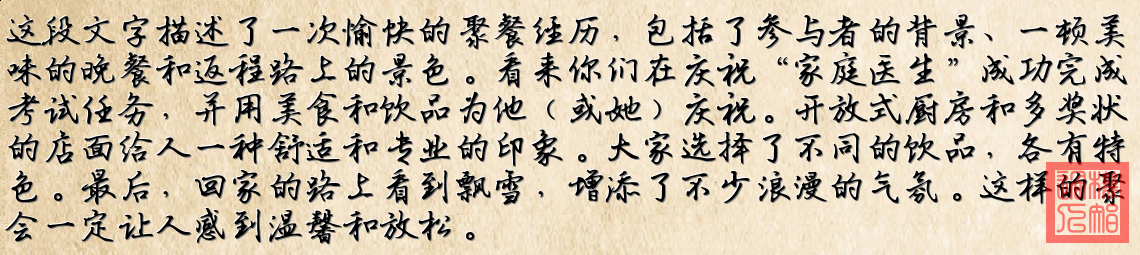 这段文字描述了一次愉快的聚餐经历，包括了参与者的背景、一顿美
味的晚餐和返程路上的景色。看来你们在庆祝“家庭医生”成功完成
考试任务，并用美食和饮品为他（或她）庆祝。开放式厨房和多奖状
的店面给人一种舒适和专业的印象。大家选择了不同的饮品，各有特
色。最后，回家的路上看到飘雪，增添了不少浪漫的气氛。这样的聚
会一定让人感到温馨和放松。